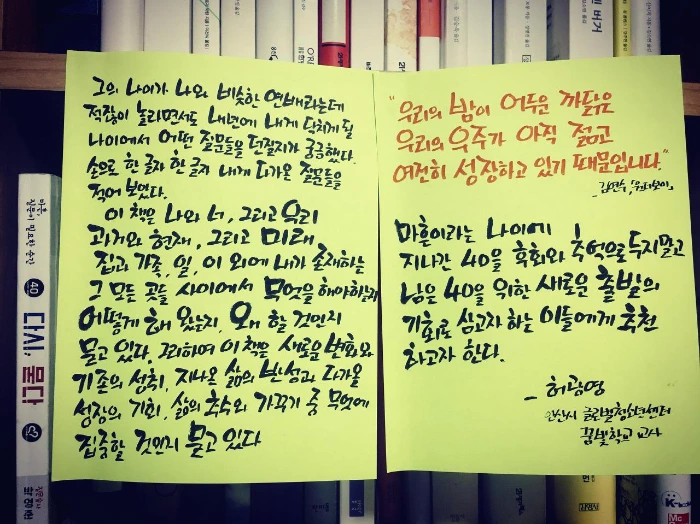 그의 나이가 나와 비슷한 연배라는데
적잖이 놀라면서도 내년에 내게 닥치게 될
나이에서 어떤 질문들을 던질지가 궁금했다.
손으로 한 글자 한 글자 내게 다가온 질문들을
적어 보았다.
이 책은 나와 너, 그리고 우리
과거와 현재, 그리고 미래
집과 가족, 일, 이 외에 내가 존재하는
그 모든 곳들 사이에서 무엇을 해야하는지
어떻게 해 왔는지, 왜 할 것인지
묻고 있다. 그리하여 이 책은 새로운 변화와
기존의 성취, 지나온 삶의 반성과 다가올
성장의 기회, 삶의 초수와 가꾸기 중 무엇에
집중할 것인지 묻고 있다
"우리의 밤이 어두운 까닭은
우리의 우주가 아직 젊고
여전히 성장하고 있기 때문입니다."
- 김연수, 「원더보이」
마흔이라는 나이에
지나간 40을 후회와 추억으로 두지말고
남은 40을 위한 새로운 출발의
기회로 삼고자 하는 이들에게 추천
하고자 한다.
- 허광영
안산시 들꽃청소년센터
꿈빛학교 교사
마흔,
질문이 필요한 순간
40
다시, 묻다